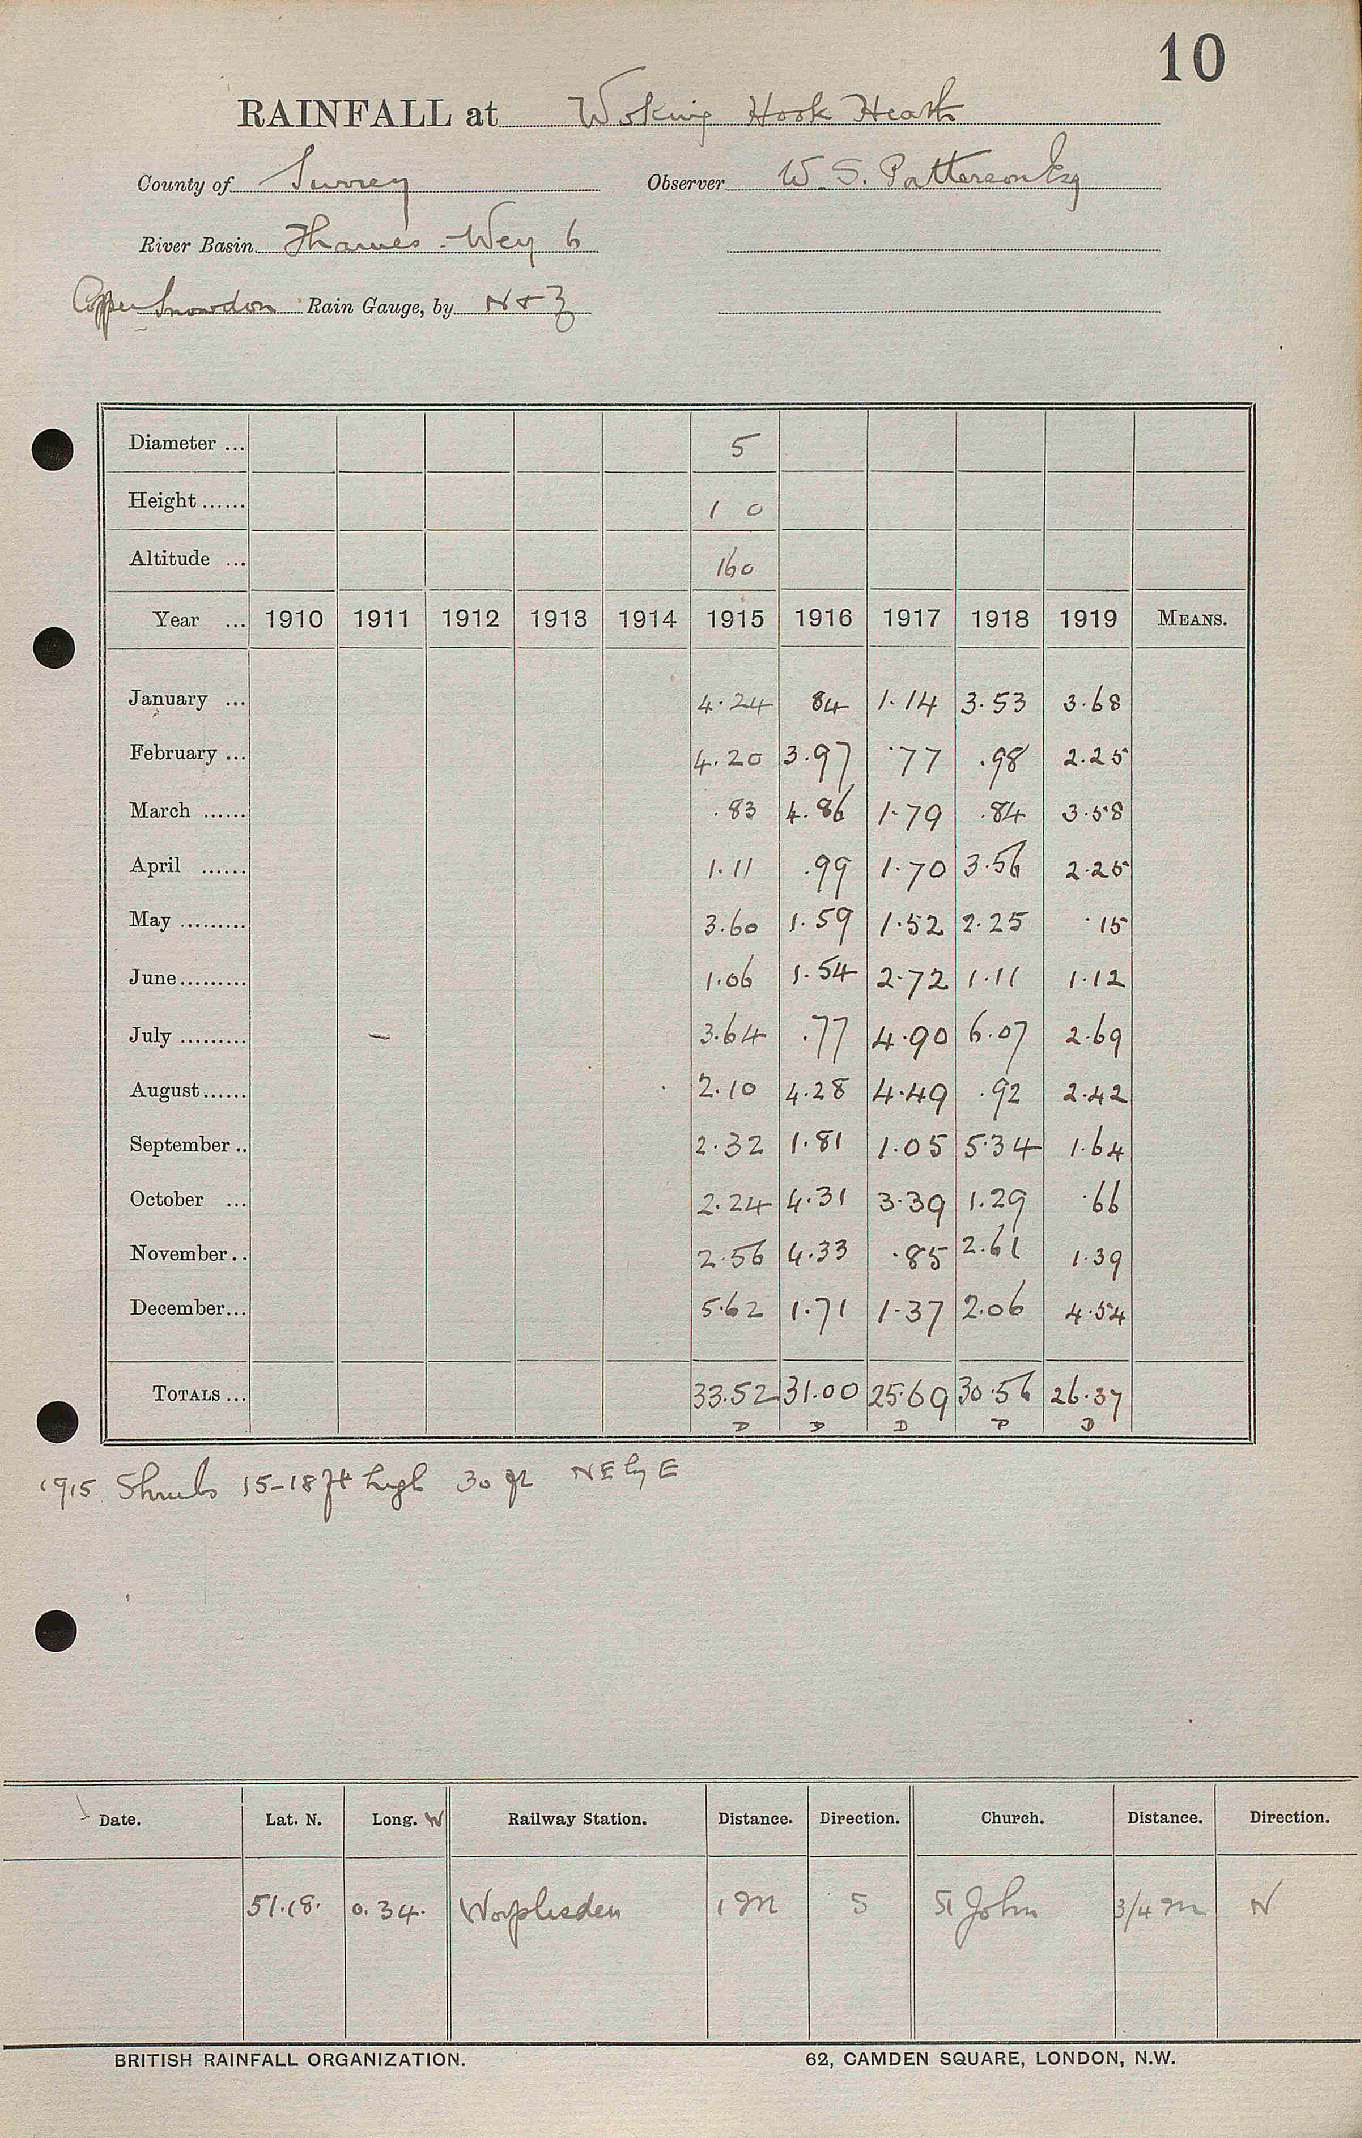 10
RAINFALL at Woking Hook Heath
County of Surrey Observer W. S. Patterson Esq
River Basin Thames - Wey 6
Copper Snowdon Rain Gauge, by N & Z
Diameter ... 5
Height ...... 1 0
Altitude ... 160
Year ... 1910 1911 1912 1913 1914 1915 1916 1917 1918 1919 MEANS.
January ... 4.24 84 1.14 3.53 3.68
February ... 4.20 3.97 .77 .98 2.25
March ...... .83 4.86 1.79 .84 3.58
April ...... 1.11 .99 1.70 3.56 2.25
May ......... 3.60 1.59 1.52 2.25 .15
June......... 1.06 1.54 2.72 1.11 1.12
July ......... - 3.64 .77 4.90 6.07 2.69
August...... 2.10 4.28 4.49 .92 2.42
September .. 2.32 1.81 1.05 5.34 1.64
October ... 2.24 4.31 3.39 1.29 .66
November.. 2.56 4.33 .85 2.61 1.39
December... 5.62 1.71 1.37 2.06 4.54
TOTALS ... 33.52 31.00 25.69 30.56 26.37
D D D P D
1915 Shrubs 15-18 ft high 30 ft NE by E
Date. Lat. N. Long. W Railway Station. Distance. Direction. Church. Distance. Direction.
51.18. 0.34. Worplesden 1 M S St John 3/4 m N
BRITISH RAINFALL ORGANIZATION. 62, CAMDEN SQUARE, LONDON, N.W.